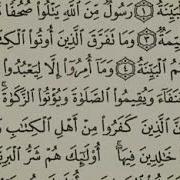 ٱلْبَيِّنَةُ ١ رَسُولٌ مِّنَ ٱللَّهِ يَتْلُوا۟ صُحُفًا
قَيِّمَةٌ ٣ وَمَا تَفَرَّقَ ٱلَّذِينَ أُوتُوا۟
ٱلْبَيِّنَةُ ٤ وَمَآ أُمِرُوٓا۟ إِلَّا لِيَعْبُدُوا۟
حُنَفَآءَ وَيُقِيمُوا۟ ٱلصَّلَوٰةَ وَيُؤْتُوا۟ ٱلزَّكَوٰةَ
ٱلَّذِينَ كَفَرُوا۟ مِنْ أَهْلِ ٱلْكِتَٰبِ
خَٰلِدِينَ فِيهَآ أُو۟لَٰٓئِكَ هُمْ شَرُّ ٱلْبَرِيَّةِ